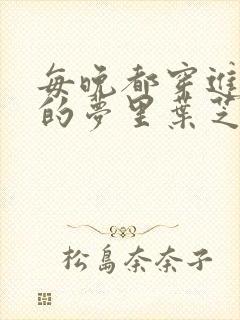 每晚都穿進
的夢里葉芝
松島奈奈子